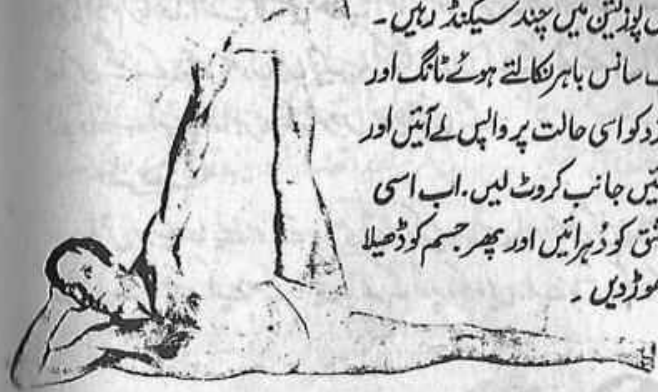 پوزیشن میں چند سیکنڈ رہیں ۔
سانس باہر نکالتے ہوئے ٹانگ اور
کو اسی حالت پر واپس لے آئیں اور
جانب کروٹ لیں . اب اسی
کو دُہرائیں اور پھر جسم کو ڈھیلا
دیں ۔